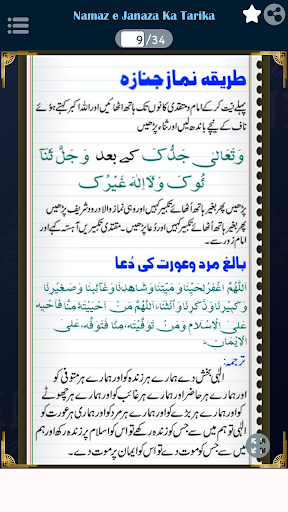 Namaz e Janaza Ka Tarika
9/34
طریقہ نماز جنازہ
پہلے نیّت کر کے امام و مقتدی کانوں تک ہاتھ اٹھائیں اور اللہ اکبر کہتے ہوئے
ناف کے نیچے باندھ لیں اور ثناء پڑھیں
وَتَعَالٰی جَدُّکَ کے بعد وَ جَلَّ ثَنَآ
ئُوکَ وَلَآ اِلٰهَ غَیْرُکَ
پڑھیں پھر بغیر ہاتھ اُٹھائے تکبیر کہیں اور وہی نماز والا درود شریف پڑھیں
پھر بغیر ہاتھ اُٹھائے تکبیر کہیں اور دُعا پڑھیں۔ مقتدی تکبیریں آہستہ کہے اور
امام زور سے۔
بالغ مرد وعورت کی دُعا
اَللّٰهُمَّ اغْفِرْ لِحَیِّنَا وَ مَیِّتِنَا وَ شَاهِدِنَا وَ غَآئِبِنَا وَ صَغِیْرِنَا
وَ کَبِیْرِنَا وَ ذَکَرِنَا وَ اُنْثٰنَا اَللّٰهُمَّ مَنْ اَحْیَیْتَهٗ مِنَّا فَاَحْیِهٖ
عَلَی الْاِسْلَامِ وَ مَنْ تَوَفَّیْتَهٗ مِنَّا فَتَوَفَّهٗ عَلَی
الْاِیْمَانِ
ترجمہ:
الٰہی بخش دے ہمارے ہر زندہ کو اور ہمارے ہر متوفی کو
اور ہمارے ہر حاضر اور ہمارے ہر غائب کو اور ہمارے ہر چھوٹے
کو اور ہمارے ہر بڑے کو اور ہمارے ہر مرد کو اور ہماری ہر عورت کو
الٰہی تو ہم میں سے جس کو زندہ رکھے تو اس کو اسلام پر زندہ رکھ اور ہم
میں سے جس کو موت دے تو اس کو ایمان پر موت دے۔